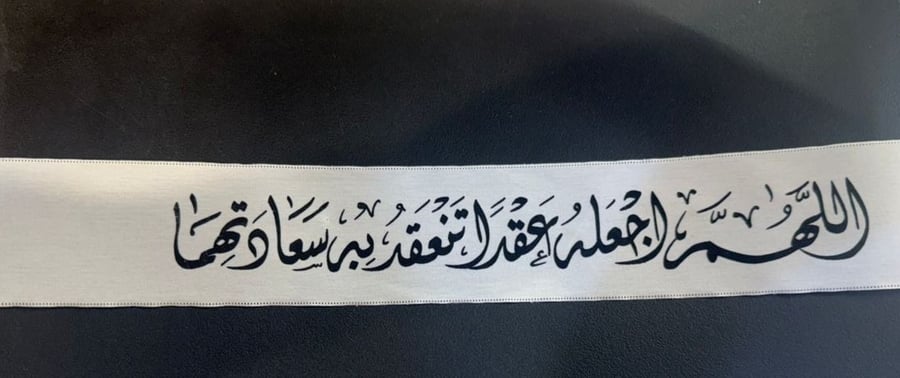 اللَّهُمَّ اجْعَلهُ عَقْدَا تَنْعَقَدُ بِهُ سَعَادَتهمَا